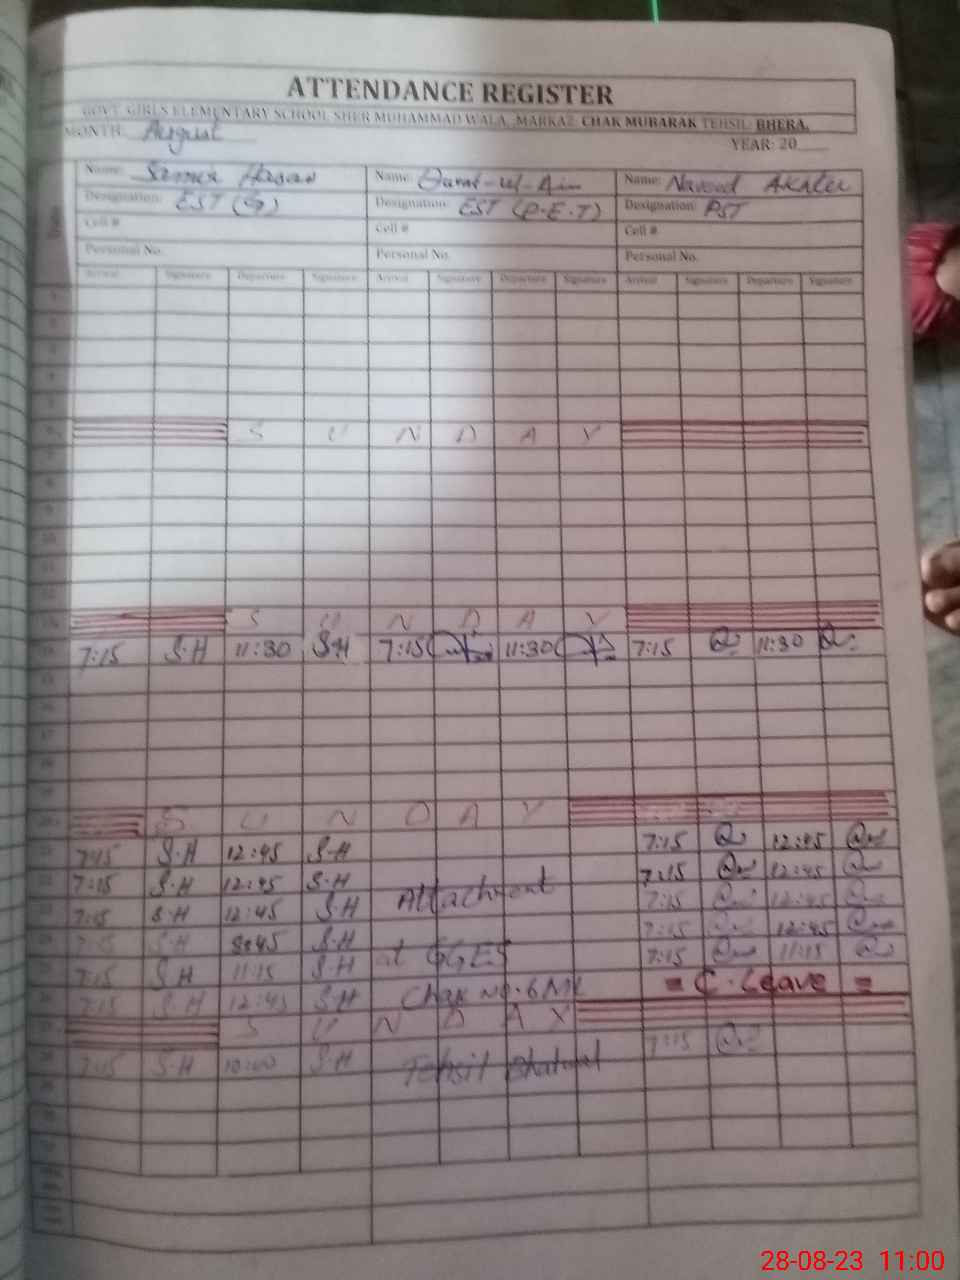 ATTENDANCE REGISTER
GOVT. GIRLS ELEMENTARY SCHOOL SHER MUHAMMAD WALA, MARKAZ CHAK MUBARAK TEHSIL: BHERA.
MONTH: August YEAR: 20
Name: Hasan Name: Name: Naveed
Designation: EST (G) Designation: EST (P.E.T) Designation: PST
Cell # Cell # Cell #
Personal No. Personal No. Personal No.
Arrival Signature Departure Signature Arrival Signature Departure Signature Arrival Signature Departure Signature
S U N D A Y
S U N D A Y
7:15 S.H 11:30 S.H 7:15 11:30 7:15 11:30
S U N D A Y
7:15 S.H 12:45 S.H 7:15 12:45
7:15 S.H 12:45 S.H Attachment 7:15 12:45
7:15 S.H 12:45 S.H 7:15 12:45
7:15 S.H S.H at GGES 7:15 12:45
7:15 S.H 11:15 S.H 7:15 11:15
7:15 S.H 12:45 S.H Chak No. 6 = C. Leave =
S U N D A Y
7:15 S.H 10:00 S.H Tehsil 7:15
28-08-23 11:00